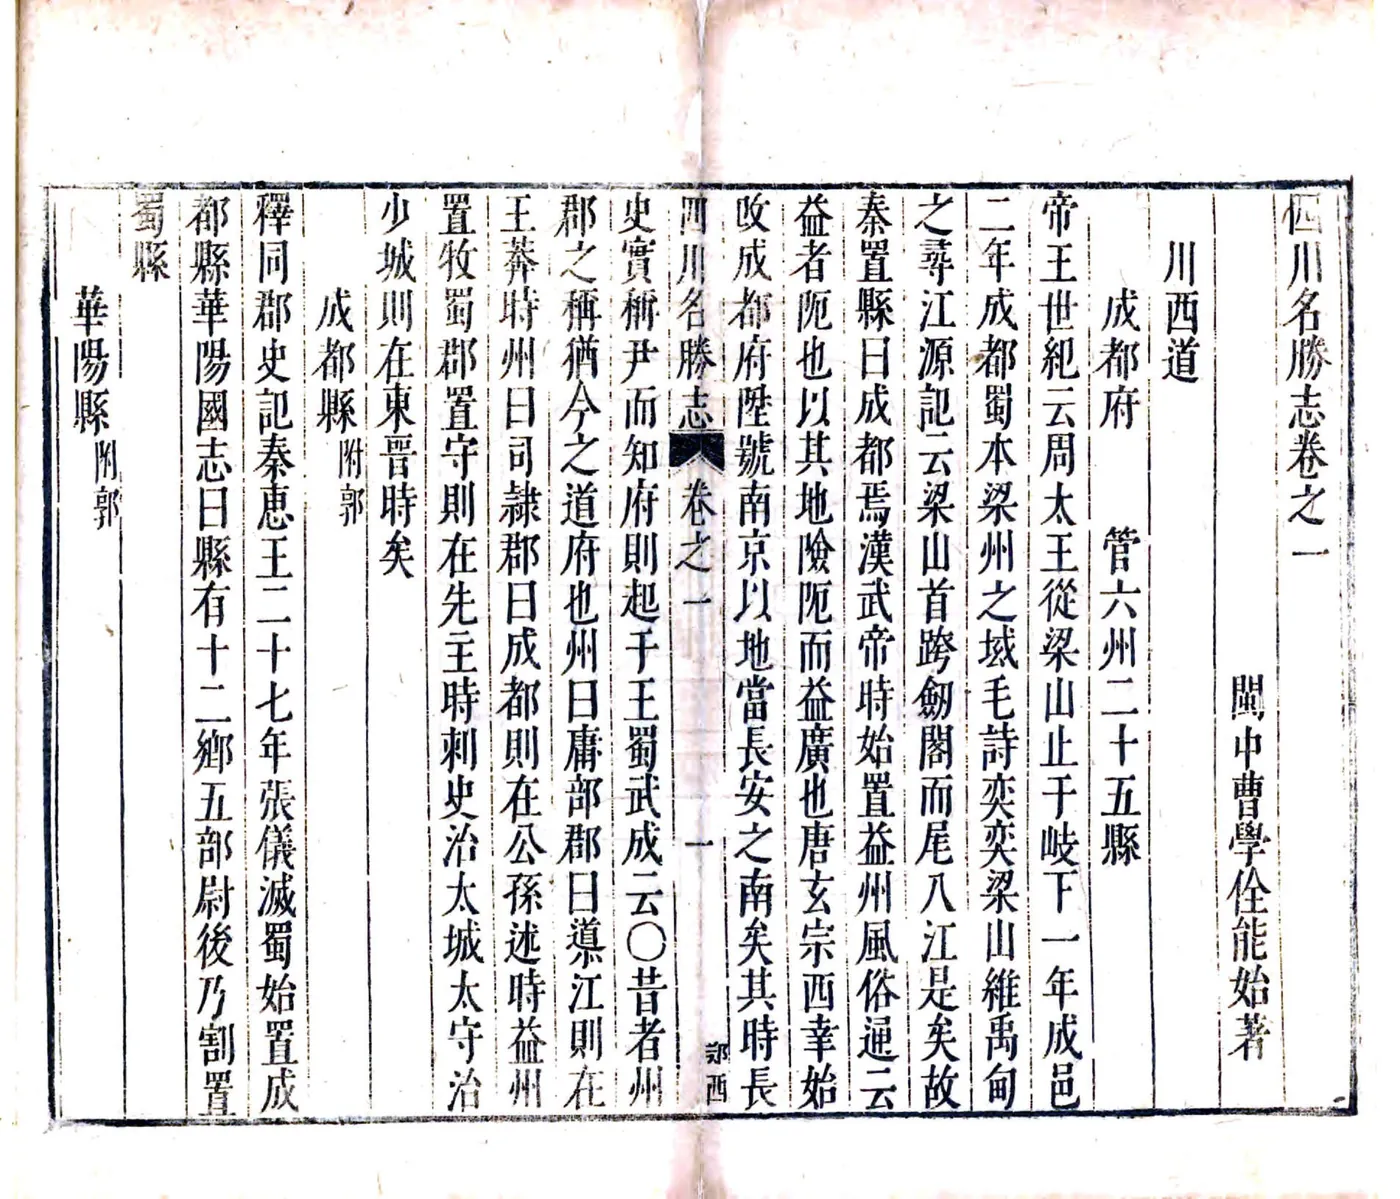 四川名勝志卷之一
閩中曹學佺能始著
川西道
成都府 管六州二十五縣
帝王世紀云周太王從梁山止于岐下一年成邑
二年成都蜀本梁州之域毛詩奕奕梁山維禹甸
之尋江源記云梁山首跨劒閣而尾八江是矣故
秦置縣曰成都焉漢武帝時始置益州風俗通云
益者阨也以其地險阨而益廣也唐玄宗西幸始
改成都府陞號南京以地當長安之南矣其時長
四川名勝志 卷之一 一 郧西
史實稱尹而知府則起于王蜀武成云〇昔者州
郡之稱猶今之道府也州曰庸部郡曰導江則在
王莽時州曰司隷郡曰成都則在公孫述時益州
置牧蜀郡置守則在先主時刺史治太城太守治
少城則在東晉時矣
成都縣附郭
釋同郡史記秦惠王二十七年張儀滅蜀始置成
都縣華陽國志曰縣有十二鄉五部尉後乃割置
蜀縣
華陽縣附郭